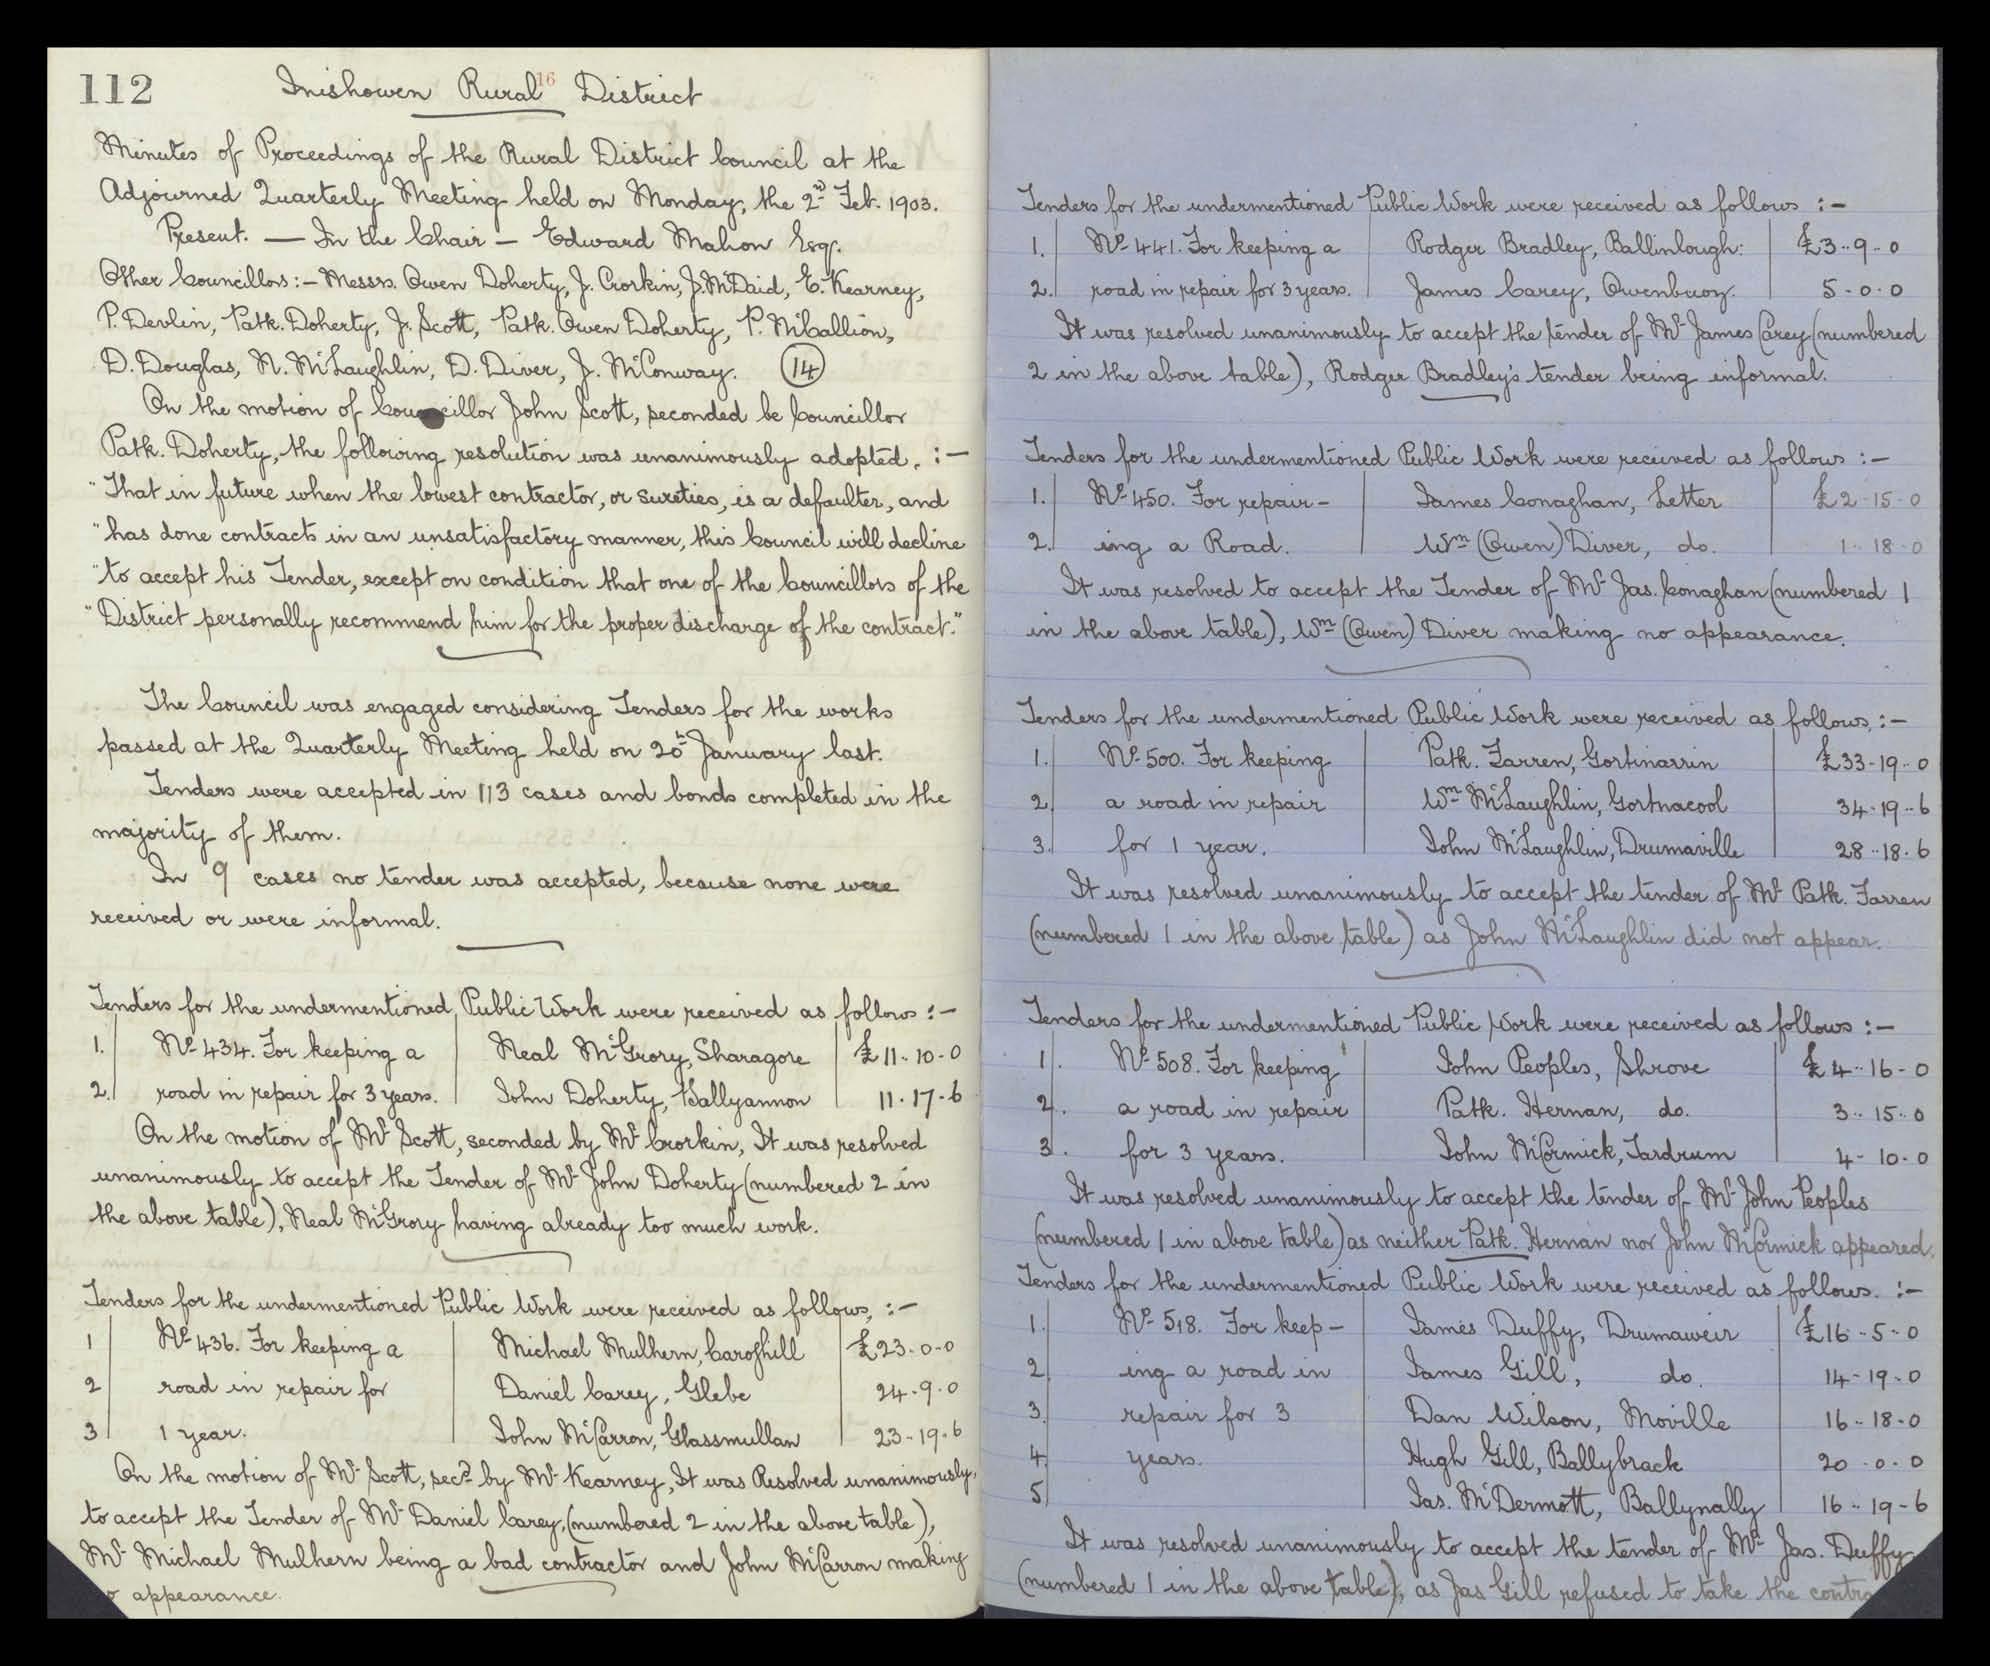 112
Inishowen Rural District
16
Minutes of Proceedings of the Rural District Council at the
Adjourned Quarterly Meeting held on Monday, the 2nd Feb. 1903.
Present. — In the Chair — Edward Mahon Esqr.
Other Councillors:— Messrs. Owen Doherty, J. Crorkin, J. McDaid, E. Kearney,
P. Devlin, Patk. Doherty, J. Scott, Patk. Owen Doherty, P. McCallion,
D. Douglas, N. McLaughlin, D. Diver, J. McConway. 14
On the motion of Councillor John Scott, seconded be Councillor
Patk. Doherty, the following resolution was unanimously adopted. :—
"That in future when the lowest contractor, or sureties, is a defaulter, and
"has done contracts in an unsatisfactory manner, this Council will decline
"to accept his Tender, except on condition that one of the Councillors of the
"District personally recommend him for the proper discharge of the contract."
The Council was engaged considering Tenders for the works
passed at the Quarterly Meeting held on 20th January last.
Tenders were accepted in 113 cases and bonds completed in the
majority of them.
In 9 cases no tender was accepted, because none were
received or were informal.
Tenders for the undermentioned Public Work were received as follows :—
1. No. 434. For keeping a Neal McGrory, Sharagore £11..10-0
2. road in repair for 3 years. John Doherty, Ballyannon 11.17.6
On the motion of Mr Scott, seconded by Mr Crorkin, It was resolved
unanimously to accept the Tender of Mr John Doherty (numbered 2 in
the above table), Neal McGrory having already too much work.
Tenders for the undermentioned Public Work were received as follows, :—
1 No. 436. For keeping a Michael Mulhern, Carofhill £23.0-0
2 road in repair for Daniel Carey, Glebe 24.9.0
3 1 year. John McCarron, Glassmullan 23-19.6
On the motion of Mr Scott, secd by Mr Kearney, It was Resolved unanimously,
to accept the Tender of Mr Daniel Carey, (numbered 2 in the above table),
Mr Michael Mulhern being a bad contractor and John McCarron making
appearance.
Tenders for the undermentioned Public Work were received as follows :—
1. No. 441. For keeping a Rodger Bradley, Ballinlough: £3..9..0
2. road in repair for 3 years. James Carey, Owenbuoy. 5-0.0
It was resolved unanimously to accept the tender of Mr James Carey (numbered
2 in the above table), Rodger Bradley's tender being informal.
Tenders for the undermentioned Public Work were received as follows :—
1. No. 450. For repair- James Conaghan, Letter £2-15-0
2. ing a Road. Wm (Owen) Diver, do. 1..18-0
It was resolved to accept the Tender of Mr Jas. Conaghan (numbered 1
in the above table), Wm (Owen) Diver making no appearance.
Tenders for the undermentioned Public Work were received as follows, :—
1. No. 500. For keeping Patk. Farren, Gortinarrin £33-19..0
2. a road in repair Wm McLaughlin, Gortnacool 34-19..6
3. for 1 year. John McLaughlin, Drumaville 28..18.6
It was resolved unanimously to accept the tender of Mr Patk. Farren
(numbered 1 in the above table) as John McLaughlin did not appear.
Tenders for the undermentioned Public Work were received as follows :—
1. No. 508. For keeping John Peoples, Shrove £4..16-0
2. a road in repair Patk. Hernan, do. 3..15..0
3. for 3 years. John McCormick, Tardrum 4-10.0
It was resolved unanimously to accept the tender of Mr John Peoples
(numbered 1 in above table) as neither Patk. Hernan nor John McCormick appeared.
Tenders for the undermentioned Public Work were received as follows. :—
1. No. 518. For keep- James Duffy, Drumaweir £16..5..0
2. ing a road in James Gill, do. 14-19.0
3. repair for 3 Dan Wilson, Moville 16..18.0
4. years. Hugh Gill, Ballybrack 20.0.0
5. Jas. McDermott, Ballynally 16..19-6
It was resolved unanimously to accept the tender of Mr Jas. Duffy
(numbered 1 in the above table), as Jas Gill refused to take the